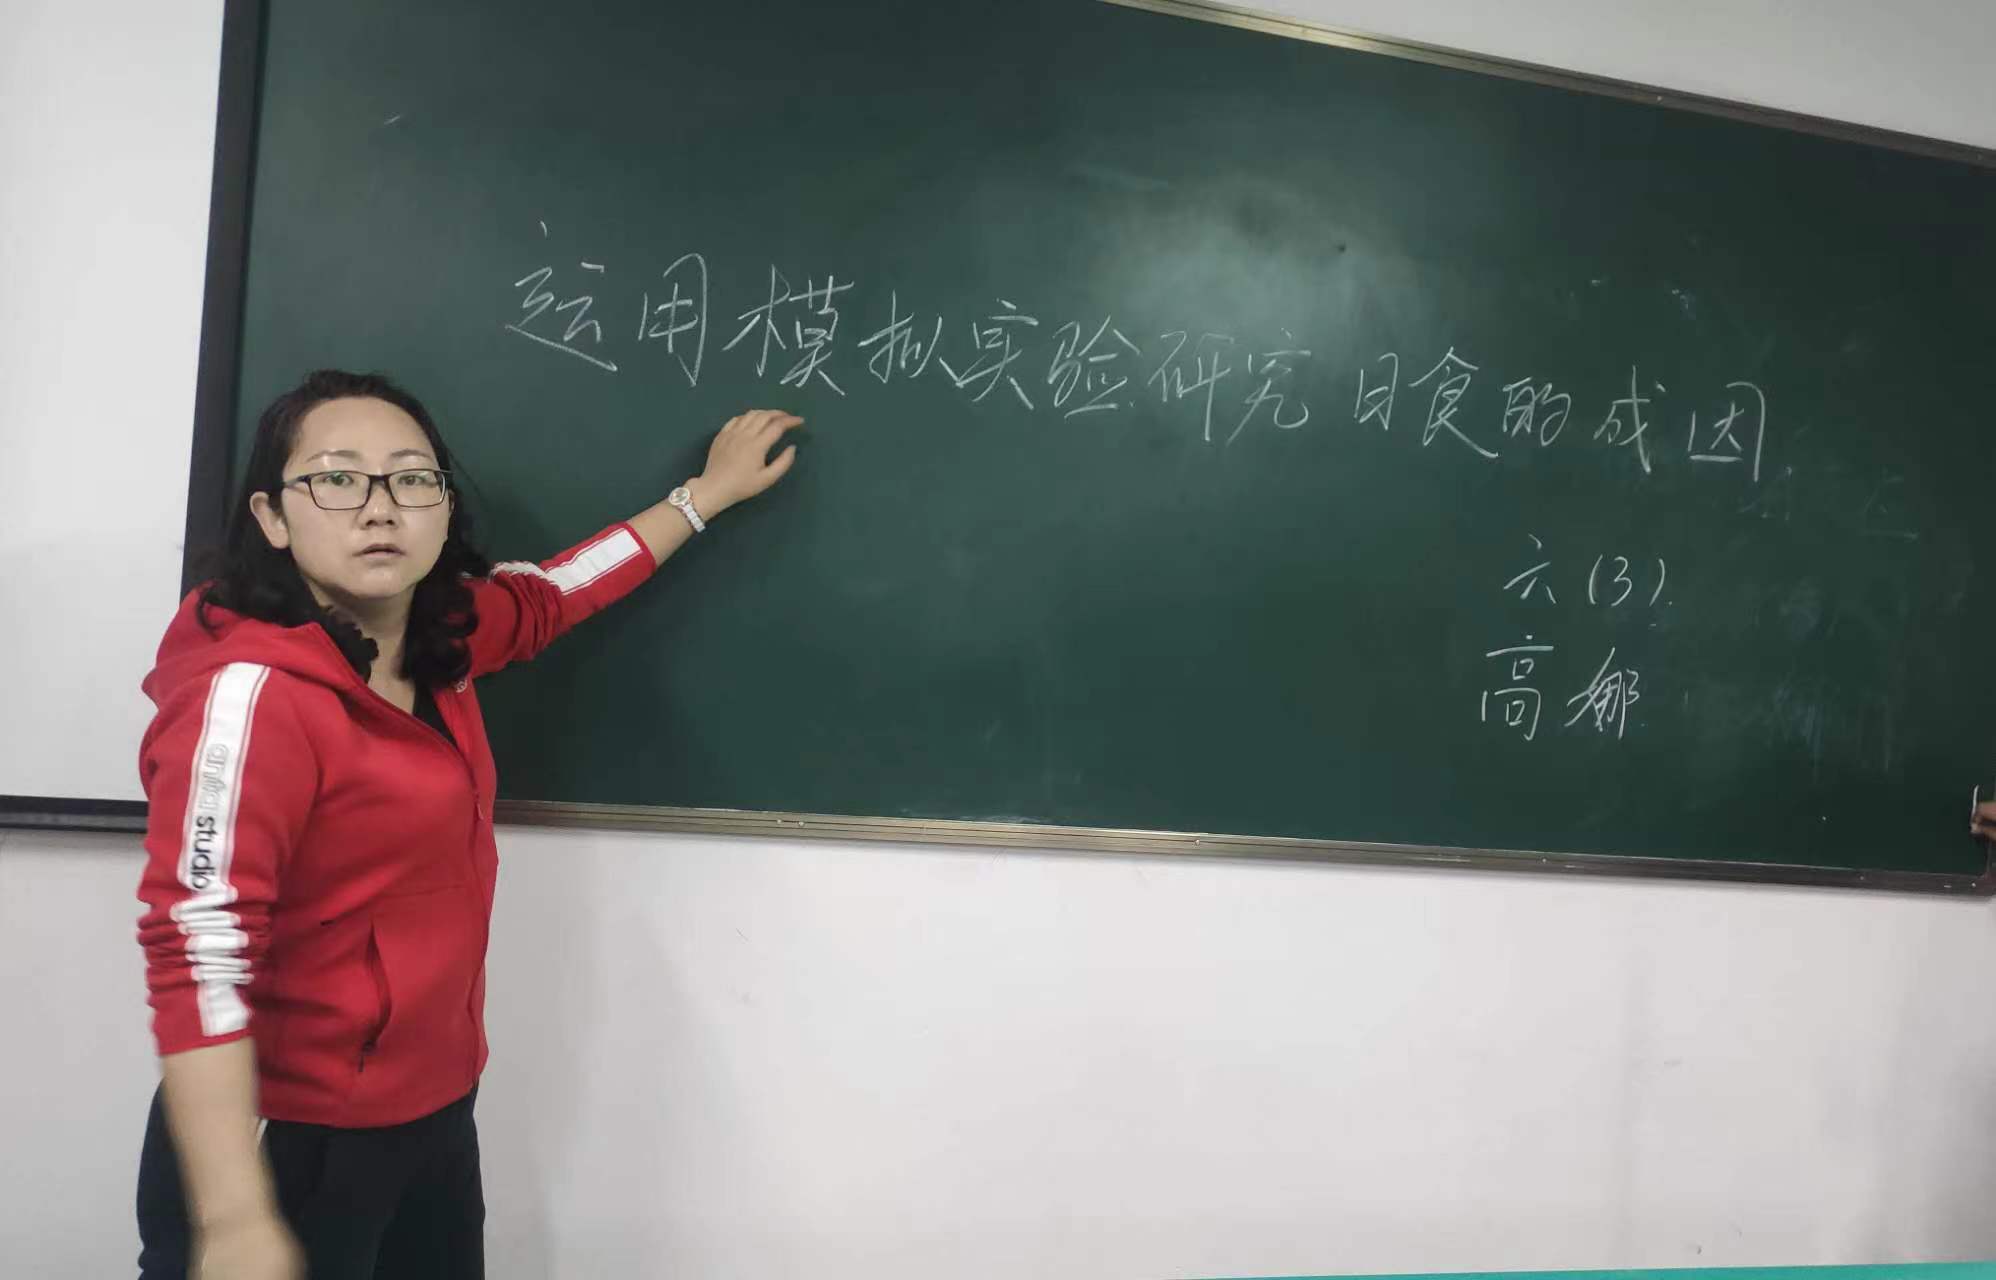 运用模拟实验研究日食的成因
六(3).
高娜
anta studio